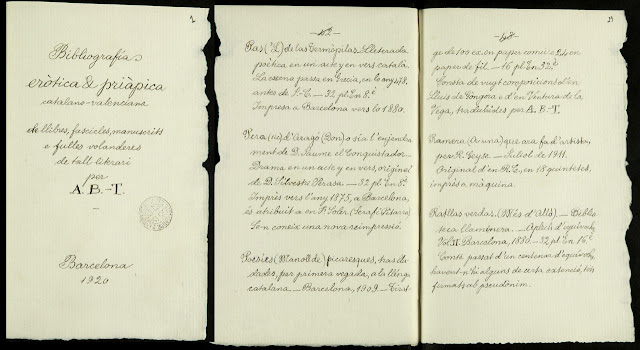 Bibliografia
eròtica & priàpica
catalano-valenciana
de llibres, fascicles, manuscrits
e fulles volanderes
de tall literari
per
A. B.-T.
Barcelona
1920
Pas (’L) de las Termòpilas. Lleterada
poètica en un acte y en vers català.
La escena passa en Grècia, en lo any 478,
antes de J.-C. — 32 pl. En 8.è
Impresa a Barcelona vers lo 1880.
d'Aragó (Don) o sia l'enjendra
ment de D. Jaume el Conquistador.—
Drama en un acte y en vers, original
de D. Silvestre — 32 pl. En 8.è
Imprès vers l'any 1875, a Barcelona,
és atribuït a en Fr. Soler (Serafí Pitarra)
S'en coneix una nova reimpressió.
Poesies (Manoll de) picaresques, tras-
dades, per primera vegada, a la llengua
catalana.—Barcelona, 1909.—Tirat-
ge de 100 ex. en paper comú e 24 en
paper de fil.—16 pl. En 32.è
Consta de vuyt composicions d'en
Lluís de Góngora e d'en Ventura de la
Vega, traduïdes per A. B.-T.
Ramera (A una) que ara fa d'artista,
per R. Geyse.—Juliol de 1911.
Original d'en R. C., en 18 quintetes,
imprès a màquina.
Ratllas verdas. (Més d'Allò).—Biblio-
teca Llaminera.—Aplech d'equivochs,
Vol. II. Barcelona, 1880.—32 pl. En 16.è
Conté passat d'un centenar d'equivochs,
havent-n'hi alguns de certa extenció, tots
fermats ab pseudònim.